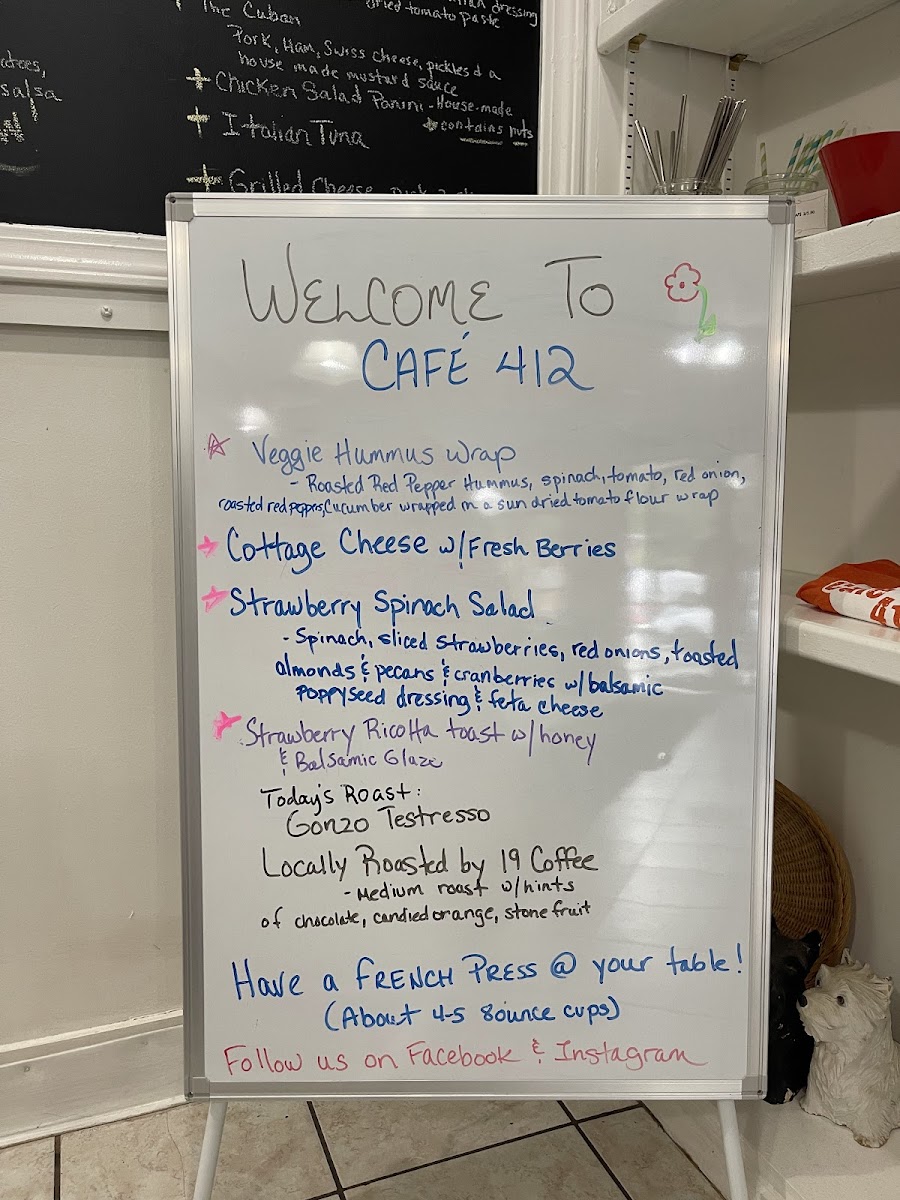 The Cuban
dried tomato paste
dressing
Pork, Ham, Swiss cheese, pickles d a
house made mustard sauce
+ Chicken Salad Panini - House-made
contains nuts
+ Italian Tuna
+ Grilled Cheese
salsa
WELCOME TO
CAFÉ 412
Veggie Hummus Wrap
- Roasted Red Pepper Hummus, spinach, tomato, red onion,
roasted red peppers, Cucumber wrapped in a sun dried tomato flour wrap
Cottage Cheese w/ Fresh Berries
Strawberry Spinach Salad
- Spinach, sliced strawberries, red onions, toasted
almonds & pecans & cranberries w/ balsamic
poppyseed dressing & feta cheese
Strawberry Ricotta toast w/ honey
& Balsamic Glaze
Today's Roast:
Gonzo Testresso
Locally Roasted by 19 Coffee
- Medium roast w/ hints
of chocolate, candied orange, stone fruit
Have a FRENCH PRESS @ your table!
(About 4-5 8ounce cups)
Follow us on Facebook & Instagram